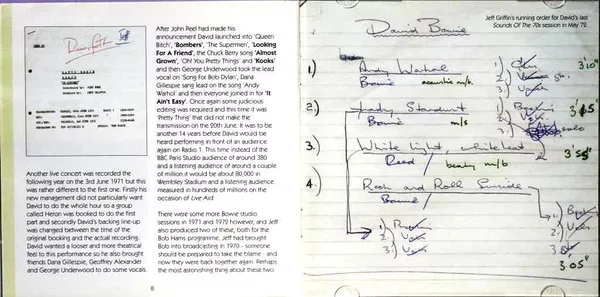 After John Peel had made his
announcement David launched into 'Queen
Bitch', 'Bombers', 'The Supermen', 'Looking
For A Friend', the Chuck Berry song 'Almost
Grown', 'Oh! You Pretty Things' and 'Kooks'
and then George Underwood took the lead
vocal on 'Song For Bob Dylan', Dana
Gillespie sang lead on the song 'Andy
Warhol' and then everyone joined in for 'It
Ain't Easy'. Once again some judicious
editing was required and this time it was
'Pretty Thing' that did not make the
transmission on the 20th June. It was to be
another 14 years before David would be
heard performing in front of an audience
again on Radio 1. This time instead of the
BBC Paris Studio audience of around 380
and a listening audience of around a couple
of million it would be about 80,000 in
Wembley Stadium and a listening audience
measured in hundreds of millions on the
occasion of Live Aid.
There were some more Bowie studio
sessions in 1971 and 1972 however, and Jeff
also produced two of these, both for the
Bob Harris programme. Jeff had brought
Bob into broadcasting in 1970 - someone
should be prepared to take the blame - and
now they were back together again. Perhaps
the most astonishing thing about these two
Another live concert was recorded the
following year on the 3rd June 1971 but this
was rather different to the first one. Firstly his
new management did not particularly want
David to do the whole hour so a group
called Heron was booked to do the first
part and secondly David's backing line-up
was changed between the time of the
original booking and the actual recording.
David wanted a looser and more theatrical
feel to this performance so he also brought
friends Dana Gillespie, Geoffrey Alexander
and George Underwood to do some vocals.
8
Jeff Griffin's running order for David's last
Sounds Of The 70s session in May '72.
David Bowie
1) Andy Warhol 3'10"
Bowie acoustic m/b.
2) Lady Stardust
Bowie m/s
3) White light white heat 3'55"
Reed / beaky m/b
4. Rock and Roll Suicide
Bowie /
3'05"